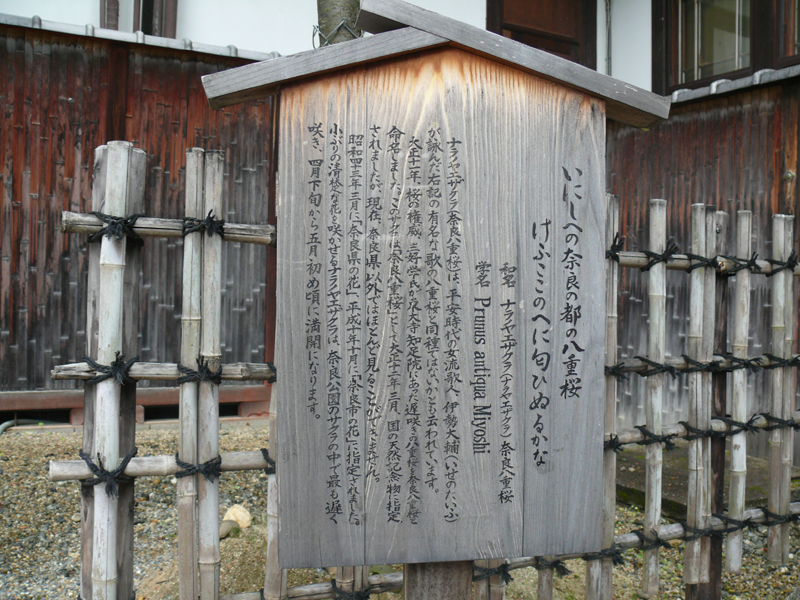 いにしへの奈良の都の八重桜
けふここのへに匂ひぬるかな
和名 ナラノヤエザクラ(ナラヤエザクラ)奈良八重桜
学名 Prunus antiqua Miyoshi
ナラノヤエザクラ(奈良八重桜)は、平安時代の女流歌人、伊勢大輔(いせのたいふ)
が詠んだ右記の有名な歌の八重桜と同種ではないかとも云われています。
大正十一年、桜の権威、三好学氏が東大寺知足院にあった遅咲きの八重桜を奈良八重桜と
命名しました。このサクラは「奈良八重桜」として大正十二年三月、国の天然記念物に指定
されましたが、現在、奈良県以外ではほとんど見ることができません。
昭和四十三年三月に「奈良県の花」、平成十年十月に「奈良市の花」に指定されました。
小ぶりの清楚な花を咲かせるナラノヤエザクラは、奈良公園のサクラの中で最も遅く
咲き、四月下旬から五月初め頃に満開になります。